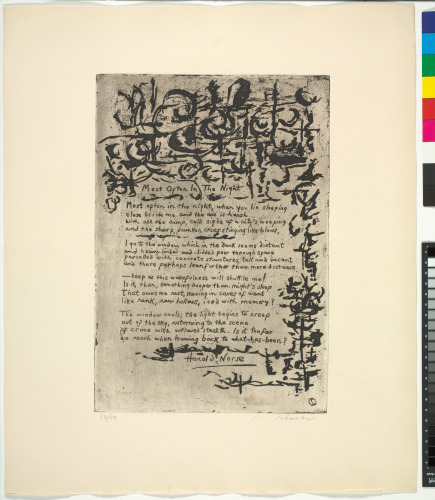 Most Often In The Night
Most often in the night, when you lie sleeping
close beside me and the air is harsh
with all the damp, cold sighs of a city's weeping
and the sharp, drunken cries stinging like blows,
I go to the window, which in the dark seems distant
and heavy-limbed and -lidded peer through space
panelled with concrete structures, tall and vacant
and there perhaps lean further than mere distance
—deep as this wakefulness will shuttle me!
Is it, then, something deeper than night's sleep
That owes me rest, moving in caves of want
like rank, now hollows, iced with memory?
The window cools; the light begins to creep
out of the sky, returning to the scene
of crime with outlaws' stealth. Is it too far
we reach when leaning back to what-has-been?
Harold Norse